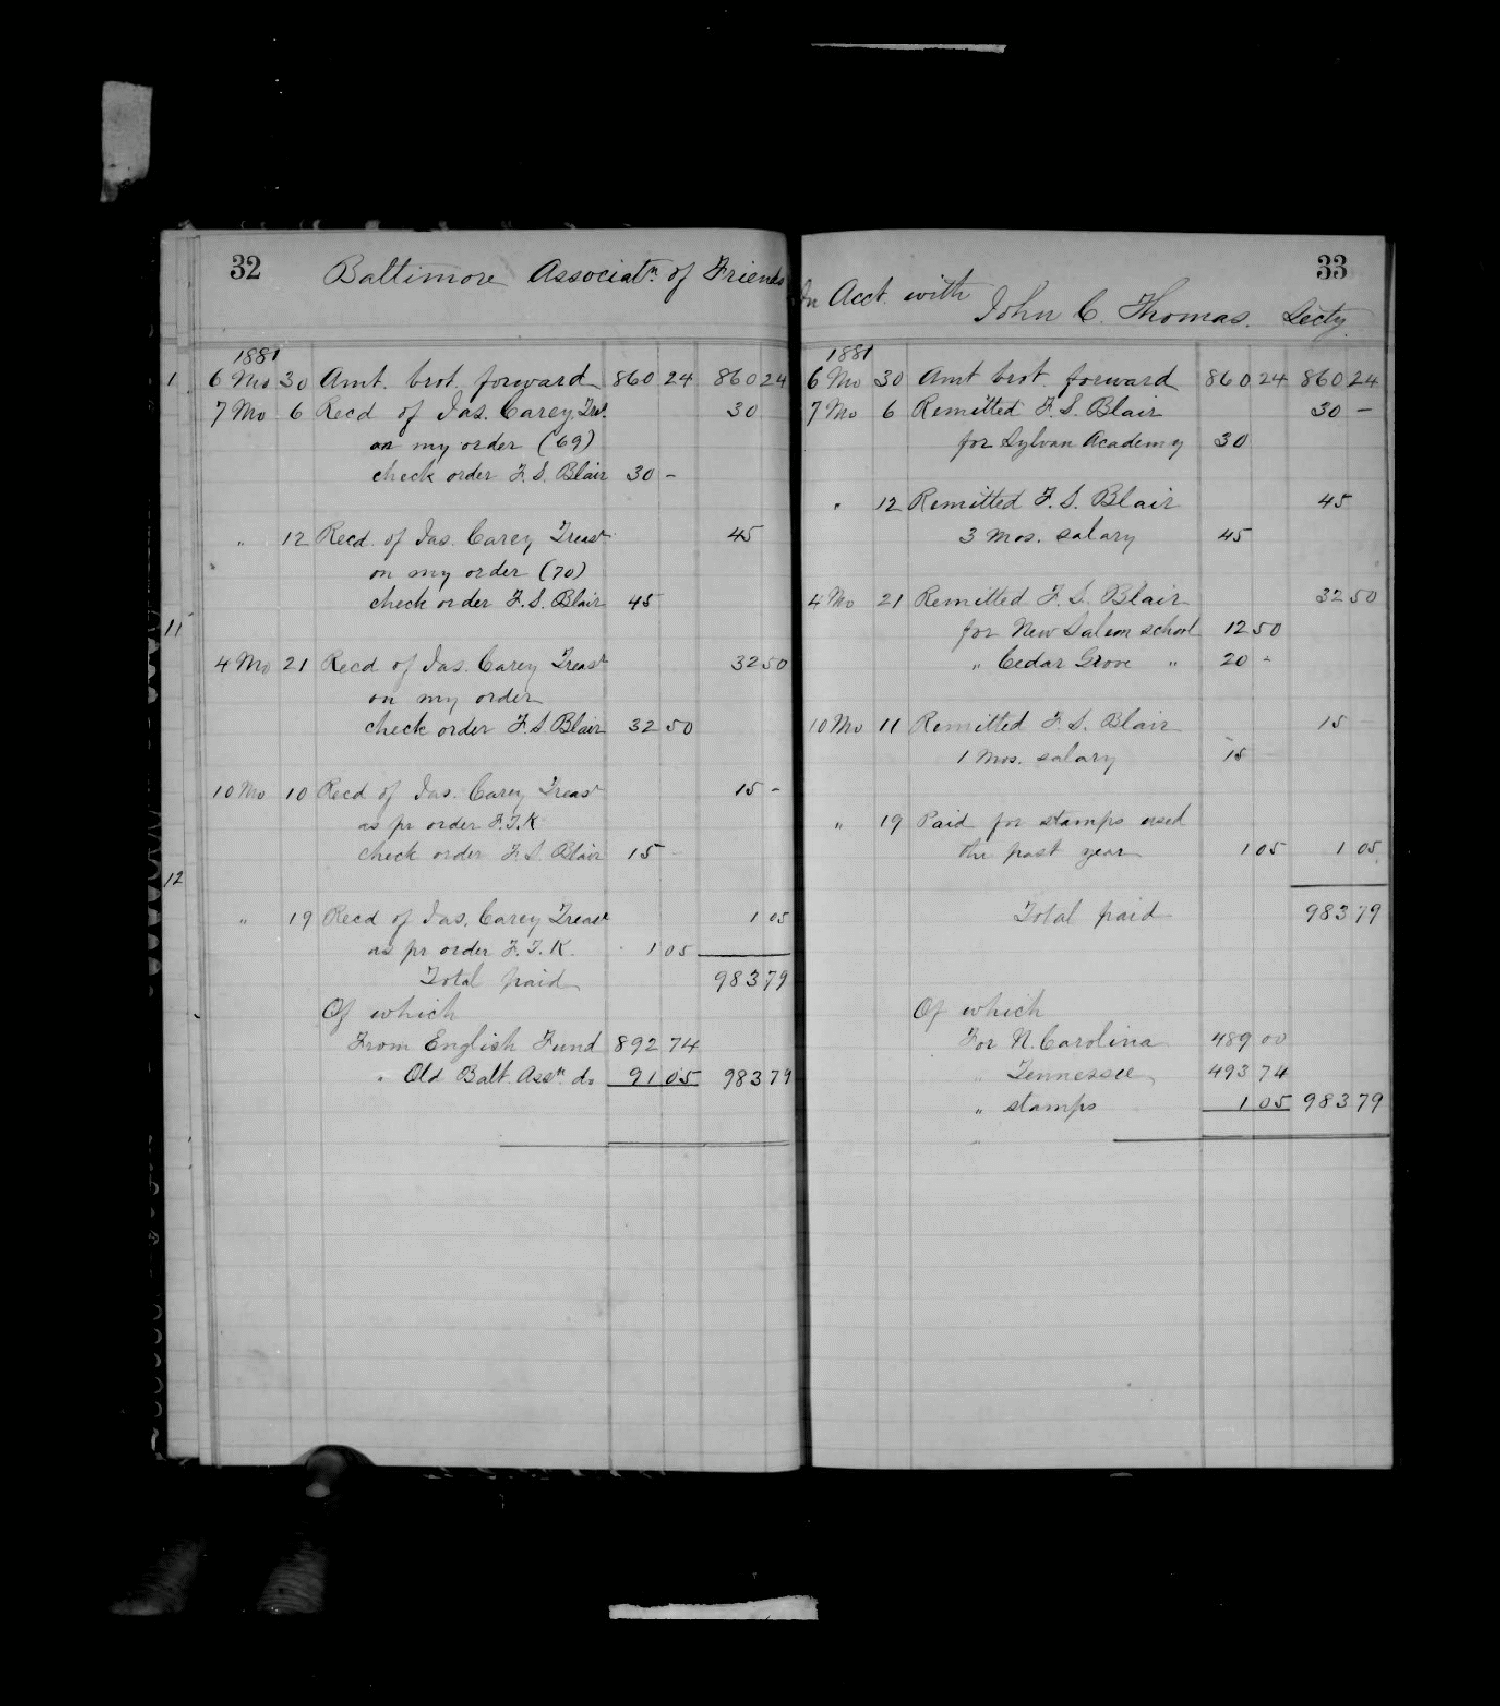 32
Baltimore Associatn. of Friends
1881
1 6 Mo 30 Amt. brot. forward 860 24 860 24
7 Mo 6 Recd of Jas. Carey Trs. 30
on my order (69)
check order F. S. Blair 30 -
" 12 Recd. of Jas. Carey Treasr 45
on my order (70)
check order F. S. Blair 45
11
4 Mo 21 Recd of Jas. Carey Treasr 32 50
on my order
check order F. S Blair 32 50
10 Mo 10 Recd of Jas. Carey Treasr 15 -
as pr order F. T. K
check order F. S. Blair 15 -
12
" 19 Recd of Jas. Carey Treasr 1 05
as pr order F. T. K. 1 05
Total paid 983 79
Of which
From English Fund 892 74
" Old Balt. Assn do 91 05 983 79
33
In Acct. with
John C. Thomas. Secty.
1881
6 Mo 30 Amt brot. forward 860 24 860 24
7 Mo 6 Remitted F. S. Blair 30 -
for Sylvan Academy 30
" 12 Remitted F. S. Blair 45
3 mos. salary 45
4 Mo 21 Remitted F. S. Blair 32 50
for New Salem school 12 50
" Cedar Grove " 20 -
10 Mo 11 Remitted F. S. Blair 15 -
1 mos. salary 15 -
" 19 Paid for stamps used
the past year 1 05 1 05
Total paid 983 79
Of which
For N. Carolina 489 00
" Tennessee 493 74
" stamps 1 05 983 79
"